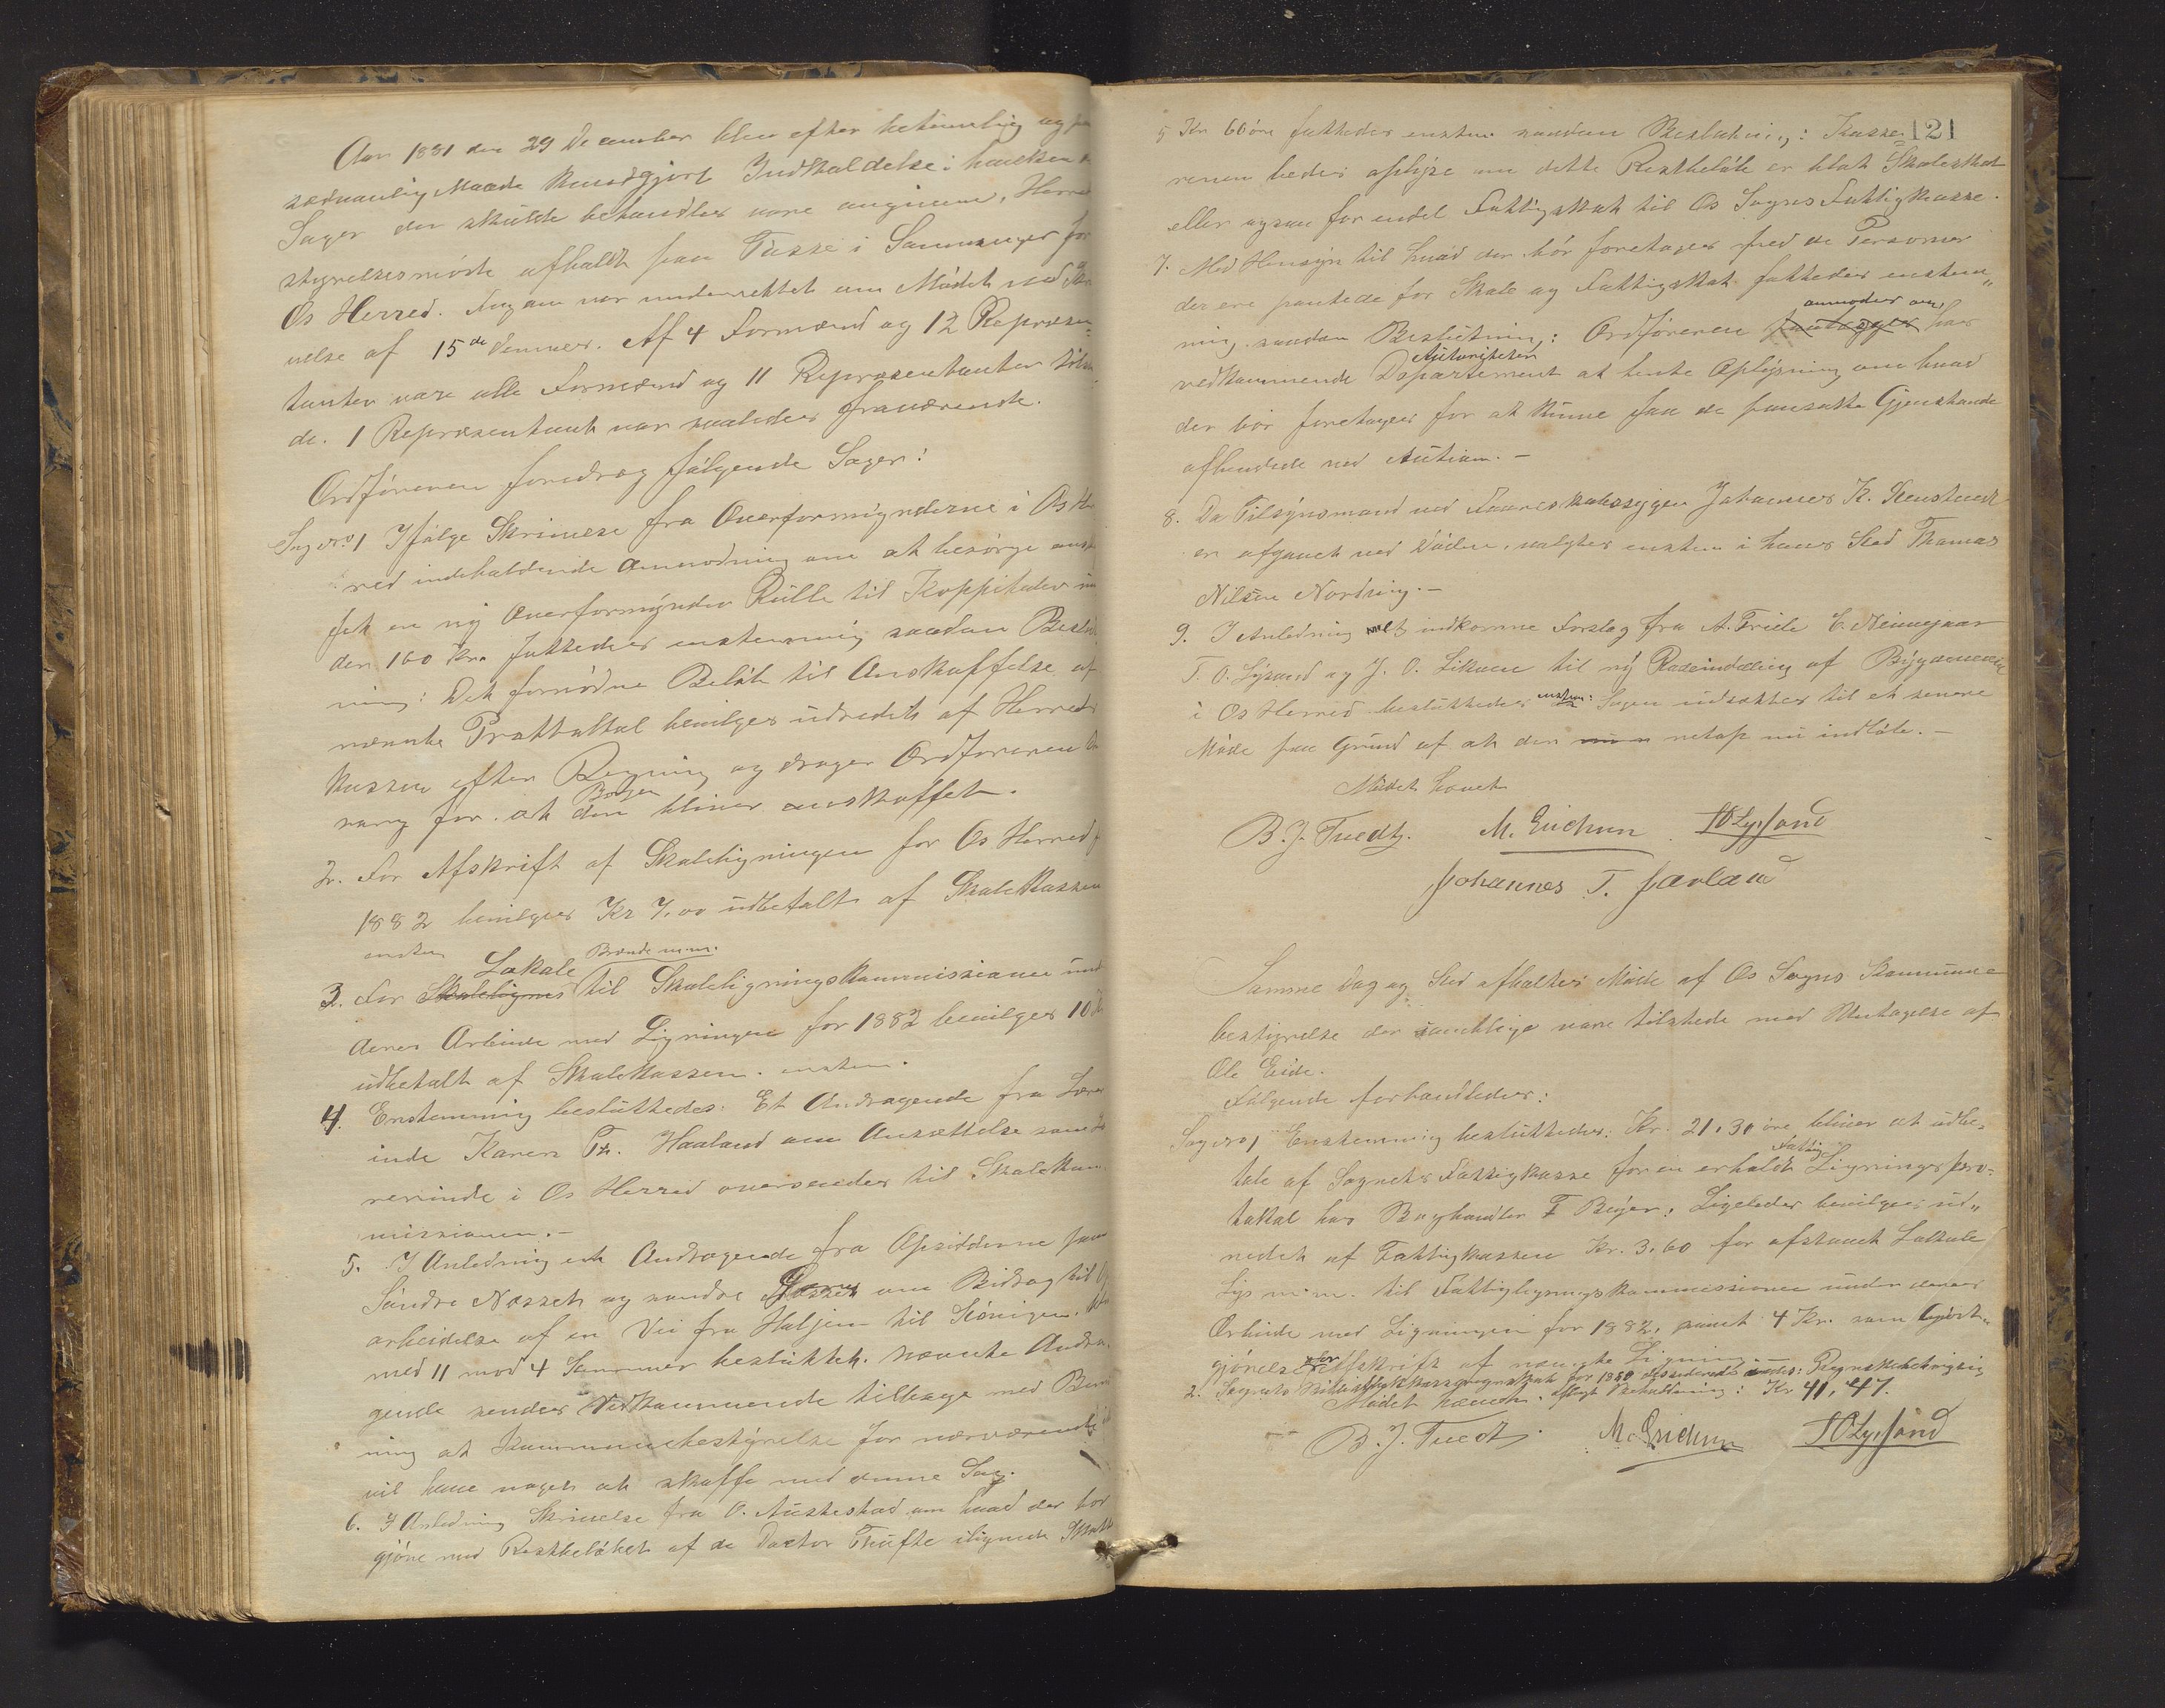 Aar 1881 den 29 December blev efter betimelig og paa
sædvanlig Maade kundgjort Indkaldelse i hvilken de
Sager der skulde behandles vare angivne, Herred
styrelsesmøde afholdt paa Tøsse i Samnanger for
Os Herred. Fogden var underrettet om Mødet ved Skri
velse af 15de dennes. Af 4 Formænd og 12 Repræsen
tanter vare alle Formænd og 11 Repræsentanter tilste
de. 1 Repræsentant var saaledes fraværende.
Ordføreren foredrog følgende Sager:
Sag no. 1 Ifølge Skrivelse fra Overformynderne i Os Her
red indeholdende Anmodning om at besørge anskaf
fet en ny Overformynder Rulle til Koppitaler un
der 160 Kr. fattedes enstemmig saadan Beslut
ning: Det fornødne Beløb til Anskaffelse af
nævnte Protokol bevilges udredet af Herreds
kassen efter Regning og drager Ordføreren Om
sorg for at den Bogen bliver anskaffet.
2. For Afskrift af Skoleligningen for Os Herred for
1882 bevilges Kr 7,00 udbetalt af Skolekassen
enstem
3. For Skoleligns Lokale Brænde m.m. til Skoleligningskommissionen under
deres Arbeide med Ligningen for 1882 bevilges 10 Kr
udbetalt af Skolekassen. enstem.
4. Enstemmig besluttedes: Et Andragende fra Lærer
inde Karen Th. Haaland om Ansættelse som Læ
rerinde i Os Herred oversendes til Skolekom
missionen.—
5. I Anledning et Andragende fra Opsidderne paa
Søndre Næsset og nordre om Bidrag til Op
arbeidelse af en Vei fra Haljem til
med 11 mod 4 Stemmer besluttet: nævnte Andra
gende sendes Vedkommende tilbage med Bemærk
ning at Kommunebestyrelse for nærværende ikke
vil have noget at skaffe med denne Sag.
6. I Anledning Skrivelse fra O. Askestad om hvad der bør
gjøres med Restbeløbet af de Doctor Thufte ilignede Skatter
121
5 Kr 60 øre fattedes enstem. saadan Beslutning: Kasse
reren bedes oplyse om dette Restbeløb er blot Skoleskat
eller ogsaa for endel Fattigskat til Os Sogns Fattigkasse.
7. Med Hensyn til hvad der bør foretages med de Personer
der ere pantede for Skole og Fattigskat fattedes enstem„
mig saadan Beslutning: Ordføreren foretager anmodes om hos
vedkommende Departement Autoriteter at hente Oplysning om hvad
der bør foretages for at kunne faa de pansatte Gjenstande
afhendede ved Aution.—
8. Da Tilsynsmand ved Faareskabssygen Johannes K. Tveustvedt
er afgaaet ved Døden, valgtes enstem i hans Sted Thomas
Nilsen Nordvig.—
9. I Anledning et indkomne Forslag fra A. Friele C. Neimegaar
T. O. Lysand og J. O. Likaen til ny Rodeinddeling af Bygdeveie
i Os Herred besluttedes enstem: Sagen udsættes til et senere
Møde paa Grund af at den nu n netop nu indløb.—
Mødet hævet
B. J. Tuedt. M. Erichsen TO Lysand
Johannes T. Havland
Samme Dag og Sted afholdtes Møde af Os Sogns Kommune
bestyrelse der samtlige vare tilstede med Undtagelse af
Ole Eide.
Følgende forhandledes:
Sag no 1 Enstemmig besluttedes: Kr. 21,30 øre bliver at udbe„
tale af Sognets Fattigkasse for en erholdt Fattig Ligningspro„
tokol hos Boghandler F Beyer; Ligeledes bevilges ud„
redet af Fattigkassen Kr. 3.60 for afstaaet Lokale
Lys m.m. til Fattigligningskommissionen under deres
Arbeide med Ligningen for 1882, samt 4 Kr. som Godt„
gjørelse for Afskrift af nævnte Ligning.—
2. Sognets Bibliothekskasseregnskab for 1880 desiderends: Regnskabsbeviisning
Mødet hævet. ifølgt Beholdning: Kr 41,47.
B. J. Tuedt. M. Erichsen TO Lysand